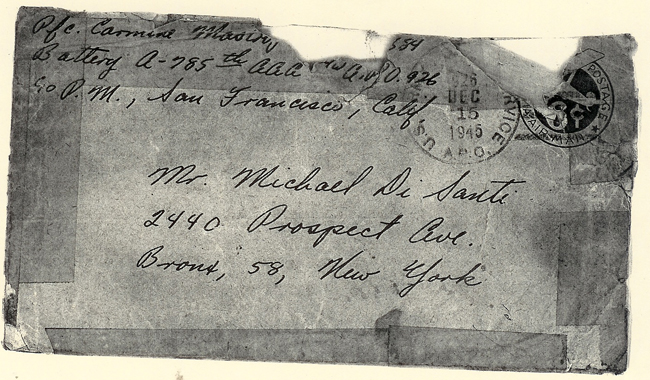 Pfc. Carmine
Battery A-785th AAA A.P.O. 926
c/o P.M., San Francisco, Calif
926
DEC
15
1945
U.S. A.P.O.
POSTAGE
AIR MAIL
Mr. Michael Di Santi
2440 Prospect Ave.
Bronx, 58, New York